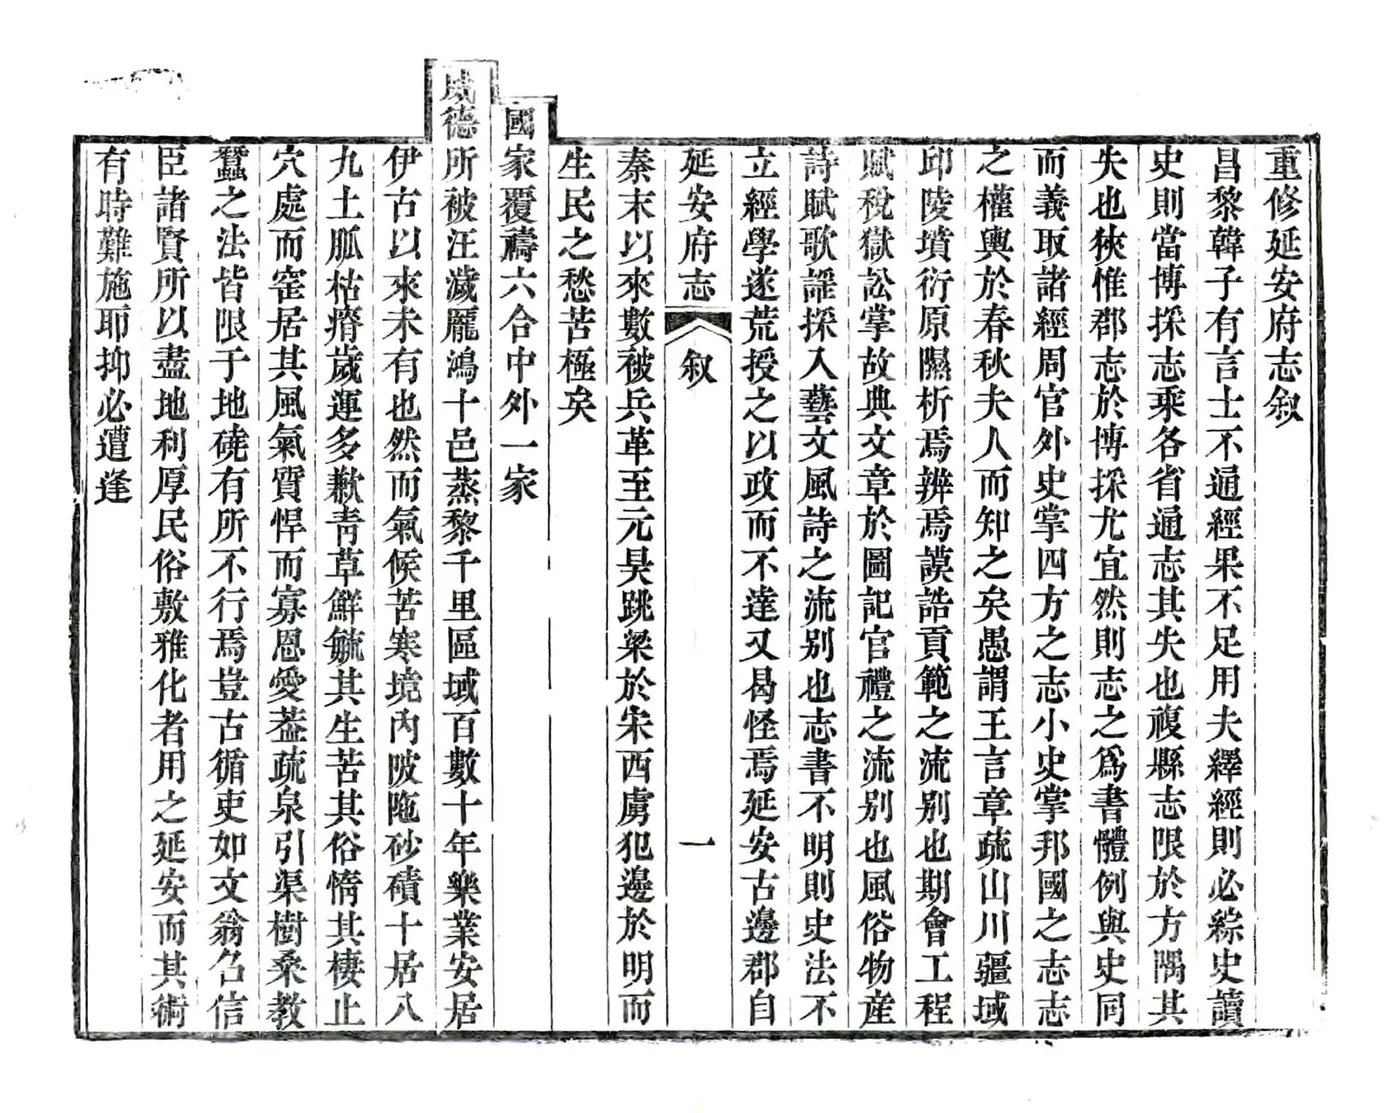 重修延安府志叙
昌黎韓子有言士不通經果不足用夫繹經則必綜史讀
史則當博採志乘各省通志其失也複縣志限於方隅其
失也狹惟郡志於博採尤宜然則志之爲書體例與史同
而義取諸經周官外史掌四方之志小史掌邦國之志志
之權輿於春秋夫人而知之矣愚謂王言章疏山川疆域
邱陵墳衍原隰析焉辨焉謨誥貢範之流别也期會工程
賦稅獄訟掌故典文章於圖記官禮之流别也風俗物産
詩賦歌謡採入藝文風詩之流别也志書不明則史法不
立經學遂荒授之以政而不達又曷怪焉延安古邊郡自
延安府志
叙
一
秦末以來數被兵革至元昊跳梁於宋西虜犯邊於明而
生民之愁苦極矣
國家覆禱六合中外一家
威德所被汪濊龎鴻十邑蒸黎千里區域百數十年樂業安居
伊古以來未有也然而氣候苦寒境內陂陁砂磧十居八
九土脈枯瘠歲運多歉靑草鮮毓其生苦其俗惰其棲止
穴處而窑居其風氣質悍而寡恩愛葢疏泉引渠樹桑教
蠶之法皆限于地磽有所不行焉豈古循吏如文翁召信
臣諸賢所以盡地利厚民俗敷雅化者用之延安而其術
有時難施耶抑必遭逢